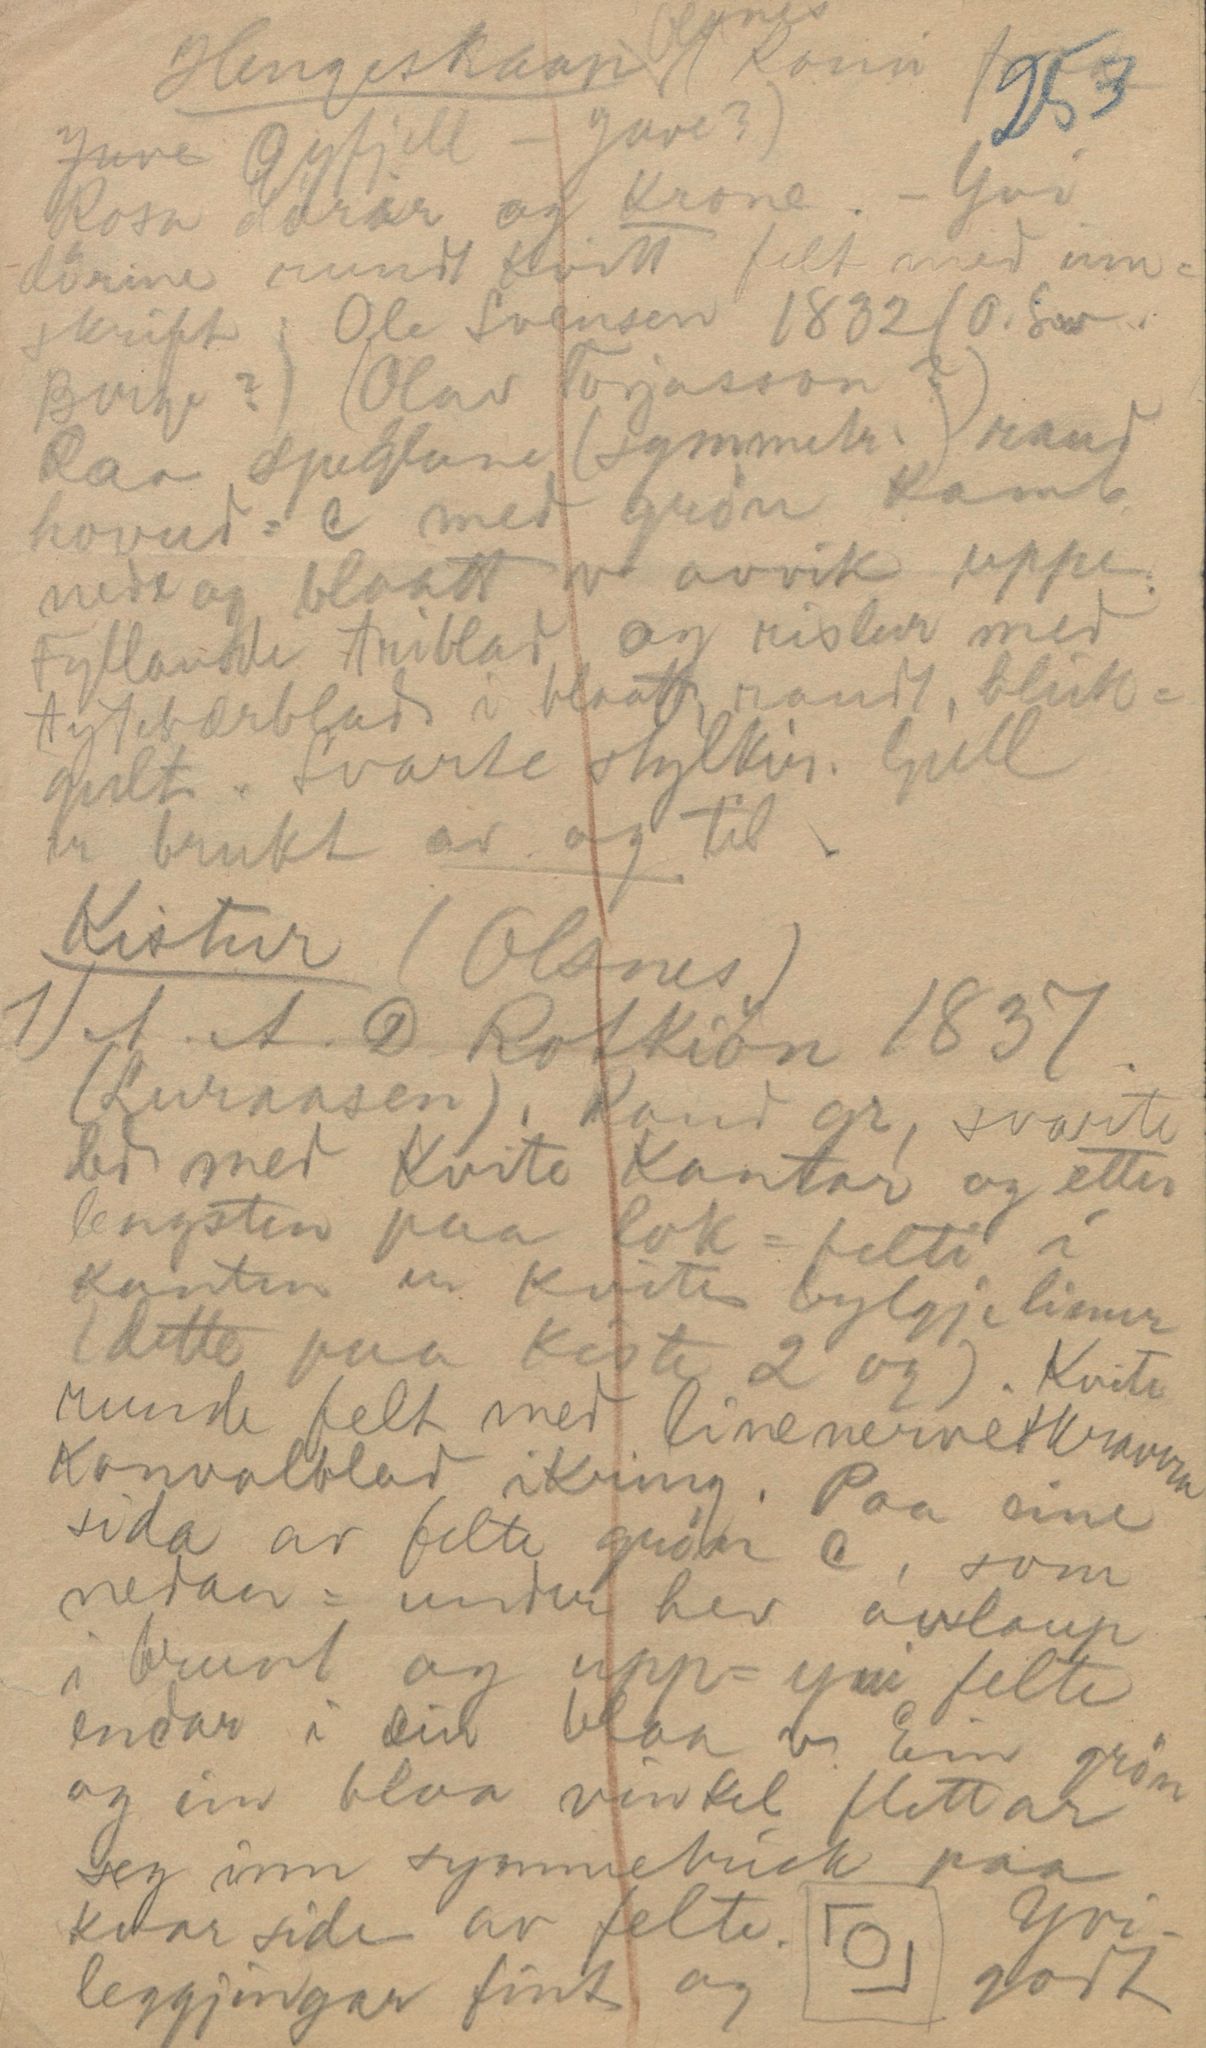 Olsnes
Hengeskaap (Komi fraa
253
Juve Gyfjell - Juve?)
Rosa dørar og Krone. - Yvi
dörine rundt kvitt felt med inn=
skrift: Ole Svensen 1832 (O. Sv.
Borge?) (Olav Torjasson?)
Paa speglane (symmetr.) raud
hovud = C med grön kamb
nede og blaatt v avvik uppe.
Fyllande triblad og ristur med
tytebærblad i blaatt, raudt, bleik=
gult. Svarte stylkir. Gull
er brukt av og til.
Kistur (Olsnes)
1) A. A. D Rotkiön 1837.
(Luraasen). Raud gr, svarte
bd med kvite kantar og etter
lengsten paa lok = felti i
kanten er kvite bylgjelinur
(dette paa kiste 2 og). Kvite
runde felt med linenervet
konvalblad ikring. Paa eine
sida av felte grön C, som
nedan = under hev avslaup
i brunt og upp = yvi felte
endar i ein blaa v. Ein grön
og ein blaa vinkel flettar
seg inn symmetrisk paa
kvar side av felte. Yvi-
leggjingar fint og godt